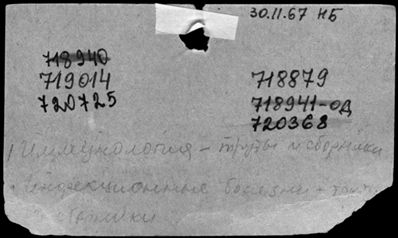 30.11.67 НБ
718940
719014
720725
718879
718941-од
720368
Иммунология - труды и сборники
Инфекционные болезни -